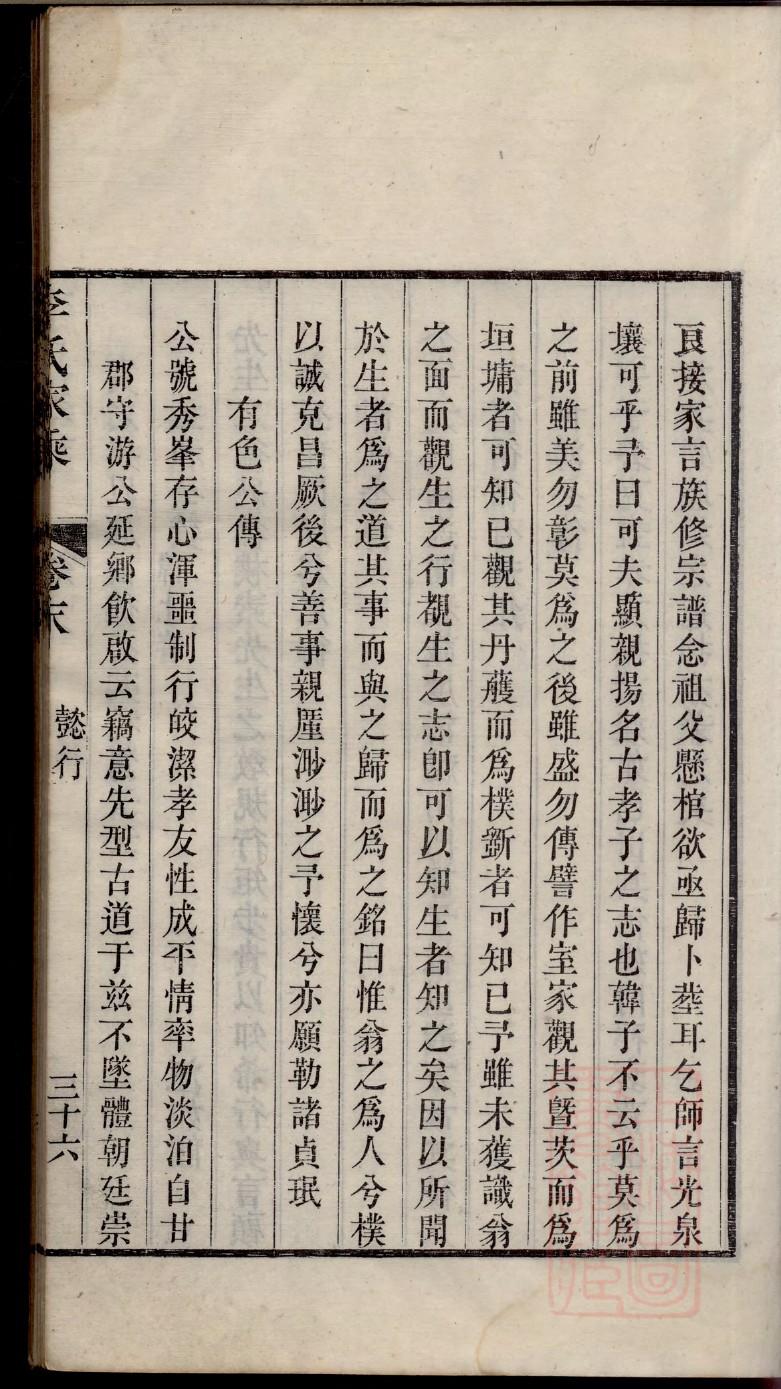 亟接家言族修宗譜念祖父懸棺欲亟歸卜塟耳乞師言光泉
壤可乎予曰可夫顯親揚名古孝子之志也韓子不云乎莫爲
之前雖美勿彰莫爲之後雖盛勿傳譬作室家觀其曁茨而爲
垣墉者可知已觀其丹雘而爲樸斵者可知已予雖未獲識翁
之面而觀生之行覩生之志卽可以知生者知之矣因以所聞
於生者爲之道其事而與之歸而爲之銘曰惟翁之爲人兮樸
以誠克昌厥後兮善事親厪渺渺之予懷兮亦願勒諸貞珉
有色公傳
公號秀峯存心渾噩制行皎潔孝友性成平情率物淡泊自甘
郡守游公延鄉飲啟云竊意先型古道于兹不墜體朝廷崇
李氏家乘 卷末 懿行 三十六